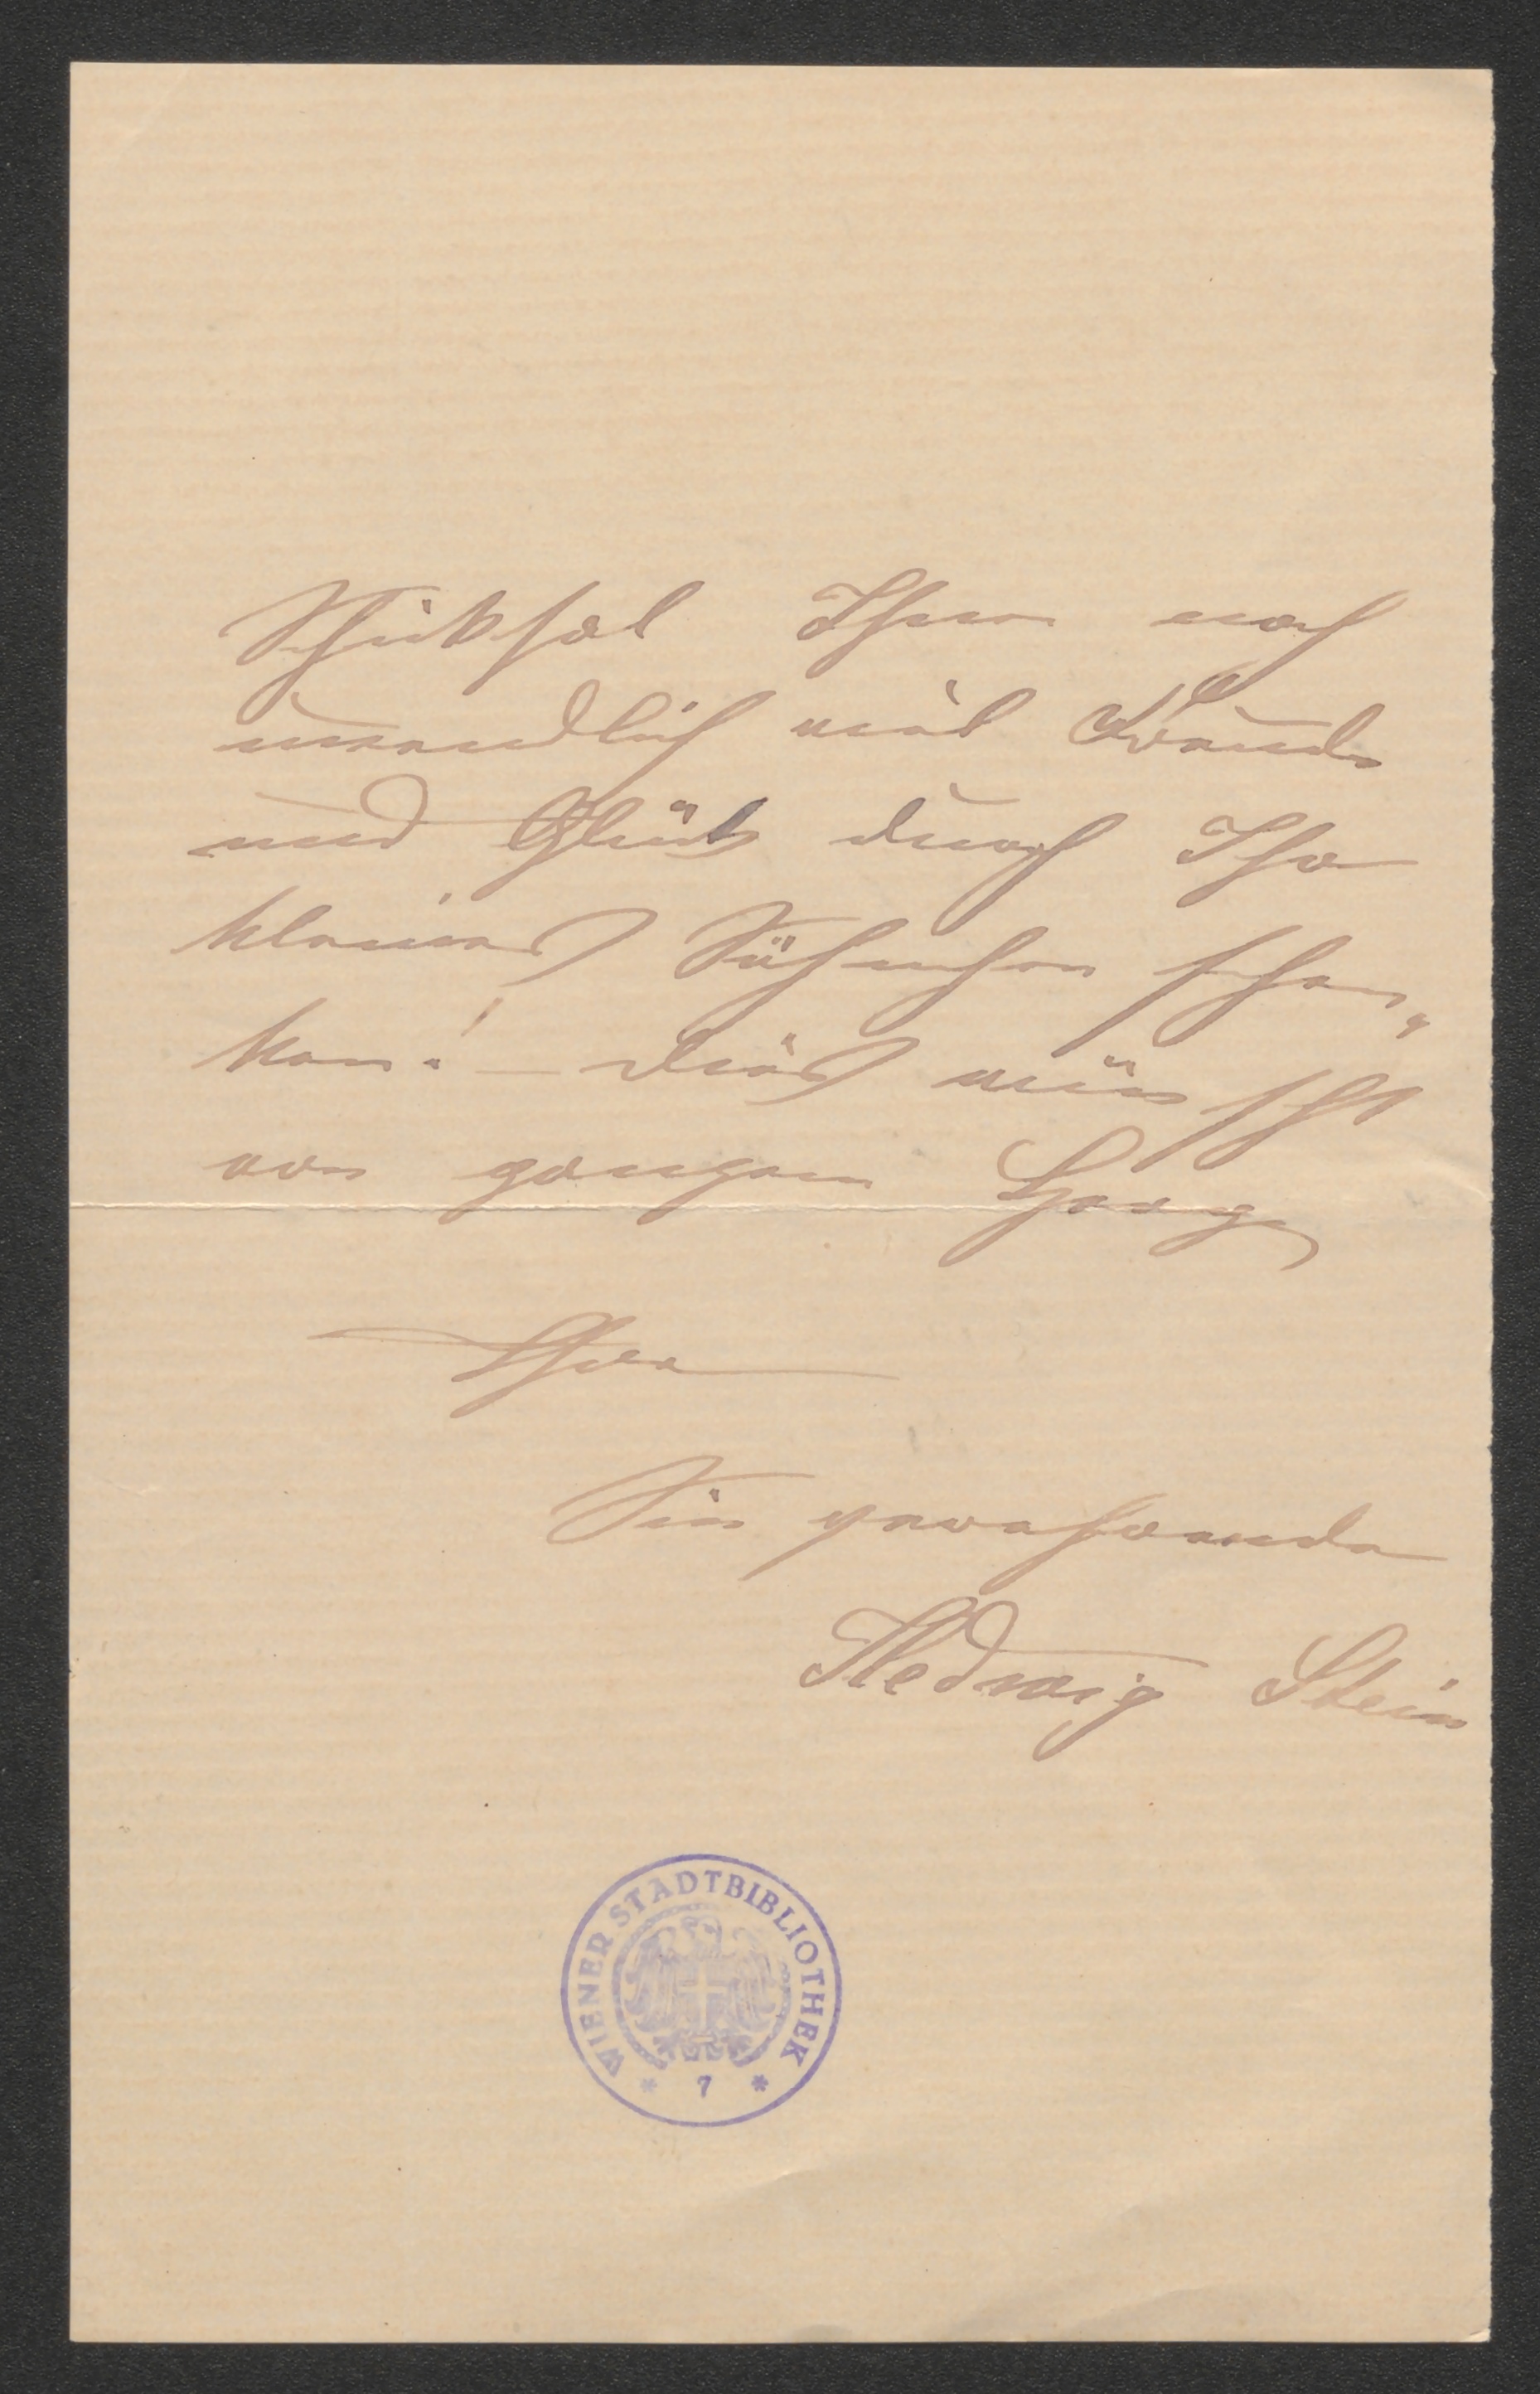 Schicksal Ihnen noch
unendlich viel Freude
und Glück durch Ihr
kleines Söhnchen schen„
ken! – dies wünscht
von ganzem Herzen
Ihre
Sie verehrende
Hedwig Stein
WIENER STADTBIBLIOTHEK
* 7 *